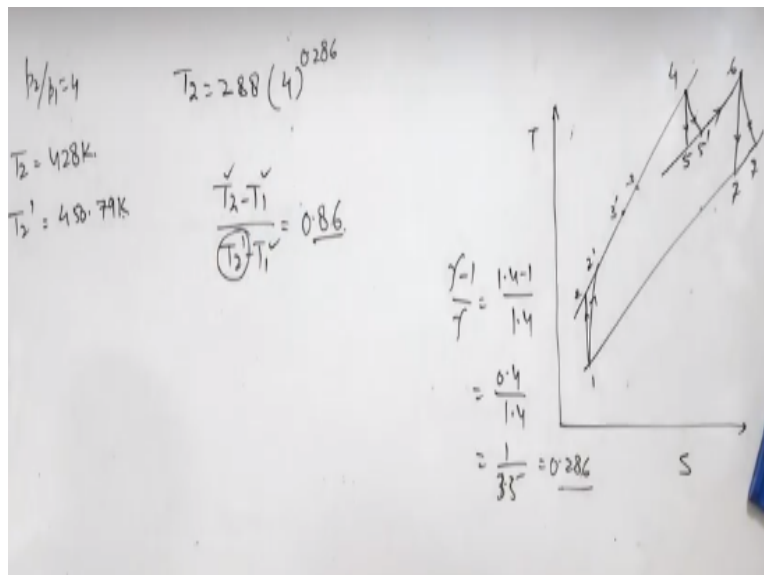 p₂/p₁=4
T₂=288(4)^0.286
T₂ = 428K.
T₂' = 450.79K
T₂-T₁ / T₂'-T₁ = 0.86
γ-1/γ = 1.4-1/1.4
= 0.4/1.4
= 1/3.5 = 0.286
T
S
1
2
2'
3'
3
4
5
5'
6
7
7